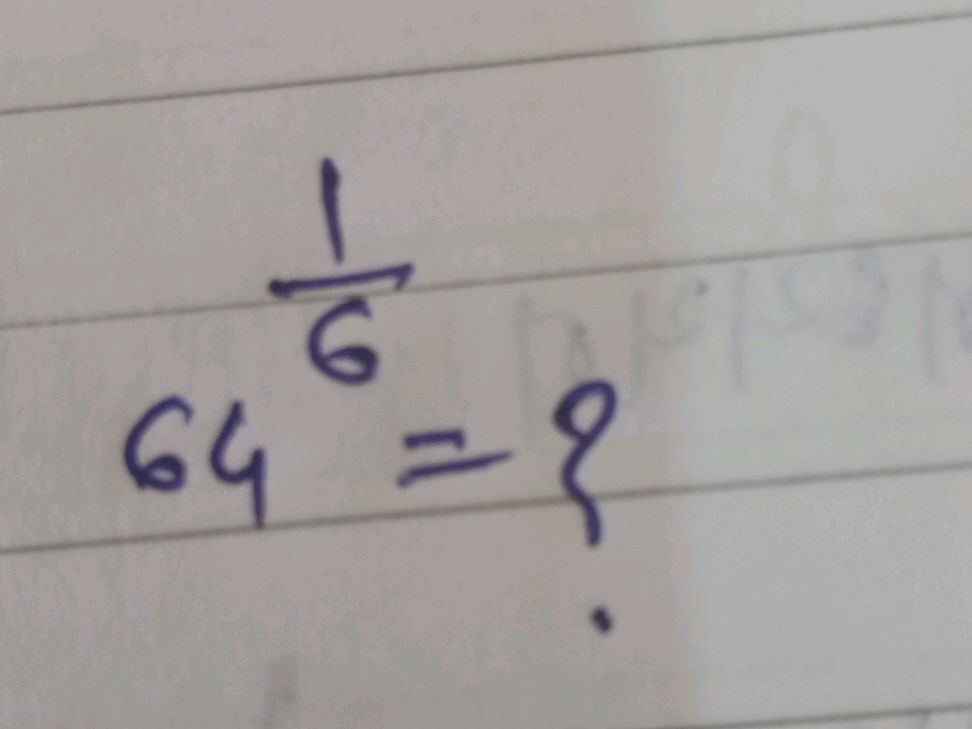 64^{1/6} = ?